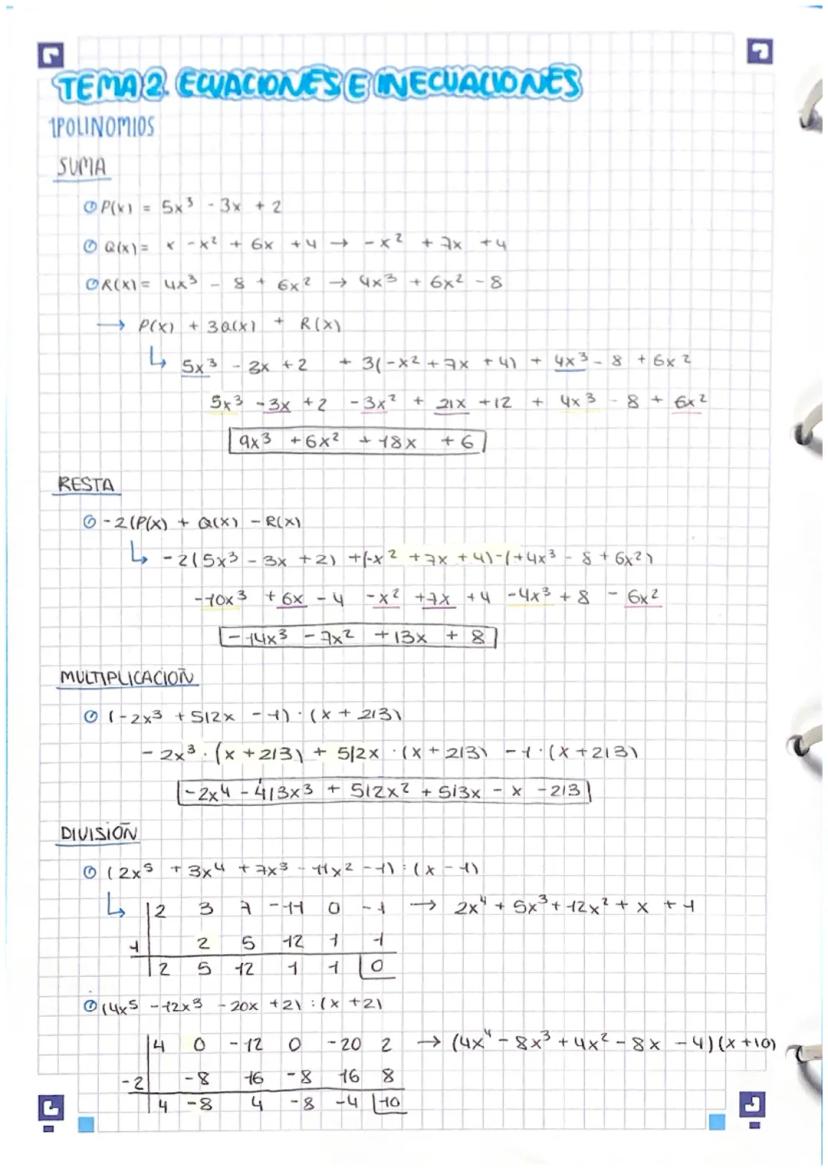 TEMA 2. ECUACIONES E INECUACIONES
1 POLINOMIOS
SUMA
P(x) = 5x³ - 3x + 2
Q(x) = x - x² + 6x + 4 → - x² + 7x + 4
R(x) = 4x³ - 8 + 6x² → 4x³ + 6x² - 8
→ P(x) + 3Q(x) + R(x)
↳ 5x³ - 3x + 2 + 3(-x² + 7x + 4) + 4x³ - 8 + 6x²
5x³ - 3x + 2 - 3x² + 21x + 12 + 4x³ - 8 + 6x²
9x³ + 6x² + 18x + 6
RESTA
- 2(P(x) + Q(x) - R(x)
↳ - 2(5x³ - 3x + 2) + (-x² + 7x + 4) - (+4x³ - 8 + 6x²)
-10x³ + 6x - 4 - x² + 7x + 4 - 4x³ + 8 - 6x²
- 14x³ - 7x² + 13x + 8
MULTIPLICACIÓN
(-2x³ + 5/2x - 1) · (x + 2/3)
- 2x³ · (x + 2/3) + 5/2x · (x + 2/3) - 1 · (x + 2/3)
-2x4 - 4/3x3 + 5/2x² + 5/3x - x - 2/3
DIVISIÓN
(2x⁵ + 3x⁴ + 7x³ - 11x² - 1) : (x - 1)
↳ 2 3 7 -11 0 -1 → 2x⁴ + 5x³ + 12x² + x + 1
1 2 5 12 1 1
2 5 12 1 1 0
(4x⁵ - 12x³ - 20x + 2) : (x + 2)
4 0 -12 0 -20 2 → (4x⁴ - 8x³ + 4x² - 8x - 4)(x + 10)
-2 -8 16 -8 16 8
4 -8 4 -8 -4 10